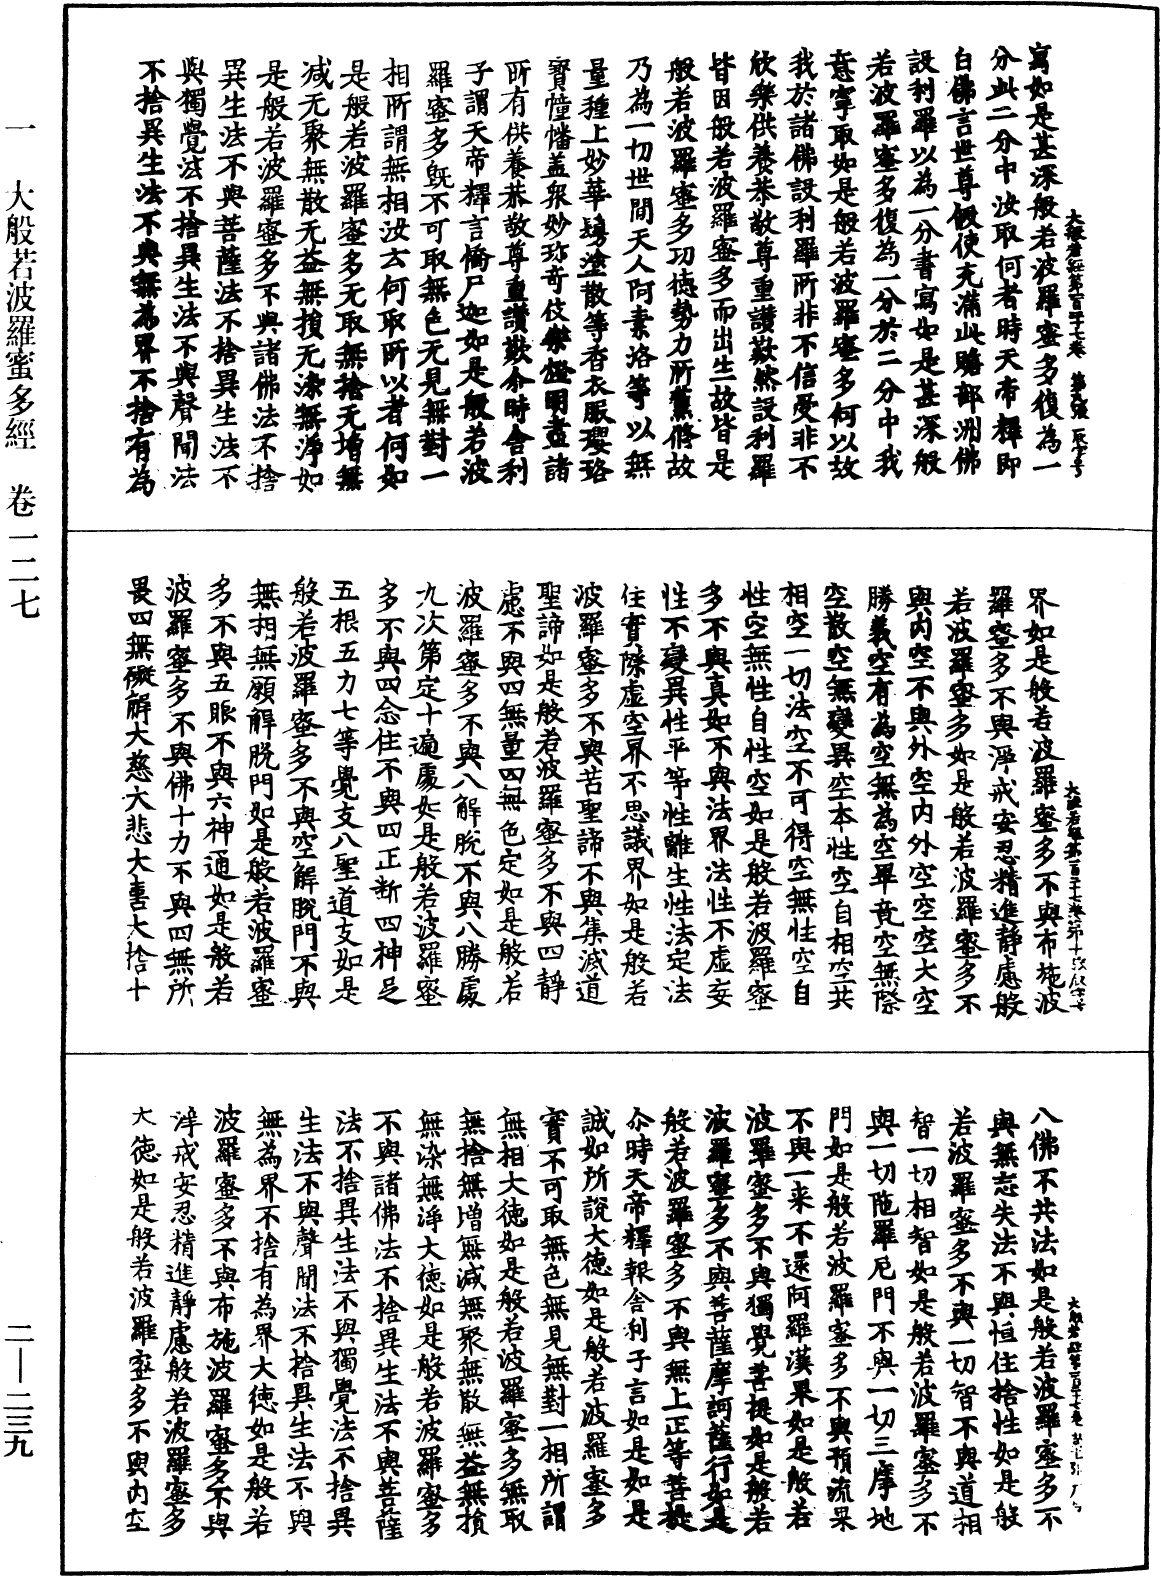 寫如是甚深般若波羅蜜多復為一
分此二分中汝取何者時天帝釋即
白佛言世尊假使充滿此贍部洲佛
設利羅以為一分書寫如是甚深般
若波羅蜜多復為一分於二分中我
意寧取如是般若波羅蜜多何以故
我於諸佛設利羅所非不信受非不
欣樂供養恭敬尊重讚歎然設利羅
皆因般若波羅蜜多而出生故皆是
般若波羅蜜多功德勢力所薰修故
乃為一切世間天人阿素洛等以無
量種上妙華鬘塗散等香衣服瓔珞
寶幢幡盖眾妙珎奇伎樂燈明盡諸
所有供養恭敬尊重讚歎尒時舍利
子謂天帝釋言憍尸迦如是般若波
羅蜜多既不可取無色无見無對一
相所謂無相汝云何取所以者何如
是般若波羅蜜多无取無捨无增無
减无聚無散无益無損无染無淨如
是般若波羅蜜多不與諸佛法不捨
異生法不與菩薩法不捨異生法不
與獨覺法不捨異生法不與聲聞法
不捨異生法不與無為界不捨有為
界如是般若波羅蜜多不與布施波
羅蜜多不與淨戒安忍精進静慮般
若波羅蜜多如是般若波羅蜜多不
與内空不與外空内外空空空大空
勝義空有為空無為空畢竟空無際
空散空無變異空本性空自相空共
相空一切法空不可得空無性空自
性空無性自性空如是般若波羅蜜
多不與真如不與法界法性不虚妄
性不變異性平等性離生性法定法
住實際虚空界不思議界如是般若
波羅蜜多不與苦聖諦不與集滅道
聖諦如是般若波羅蜜多不與四静
慮不與四無量四無色定如是般若
波羅蜜多不與八解脱不與八勝處
九次第定十遍處如是般若波羅蜜
多不與四念住不與四正断四神足
五根五力七等覺支八聖道支如是
般若波羅蜜多不與空解脱門不與
無相無願解脱門如是般若波羅蜜
多不與五眼不與六神通如是般若
波羅蜜多不與佛十力不與四無所
畏四無礙解大慈大悲大喜大捨十
八佛不共法如是般若波羅蜜多不
與無忘失法不與恒住捨性如是般
若波羅蜜多不與一切智不與道相
智一切相智如是般若波羅蜜多不
與一切陁羅尼門不與一切三摩地
門如是般若波羅蜜多不與預流果
不與一来不還阿羅漢果如是般若
波羅蜜多不與獨覺菩提如是般若
波羅蜜多不與菩薩摩訶薩行如是
般若波羅蜜多不與無上正等菩提
尒時天帝釋報舍利子言如是如是
誠如所說大德如是般若波羅蜜多
實不可取無色無見無對一相所謂
無相大德如是般若波羅蜜多無取
無捨無增無減無聚無散無益無損
無染無淨大德如是般若波羅蜜多
不與諸佛法不捨異生法不與菩薩
法不捨異生法不與獨覺法不捨異
生法不與聲聞法不捨異生法不與
無為界不捨有為界大德如是般若
波羅蜜多不與布施波羅蜜多不與
淨戒安忍精進静慮般若波羅蜜多
大德如是般若波羅蜜多不與内空
一 大般若波羅蜜多經 卷一二七
二—二三九